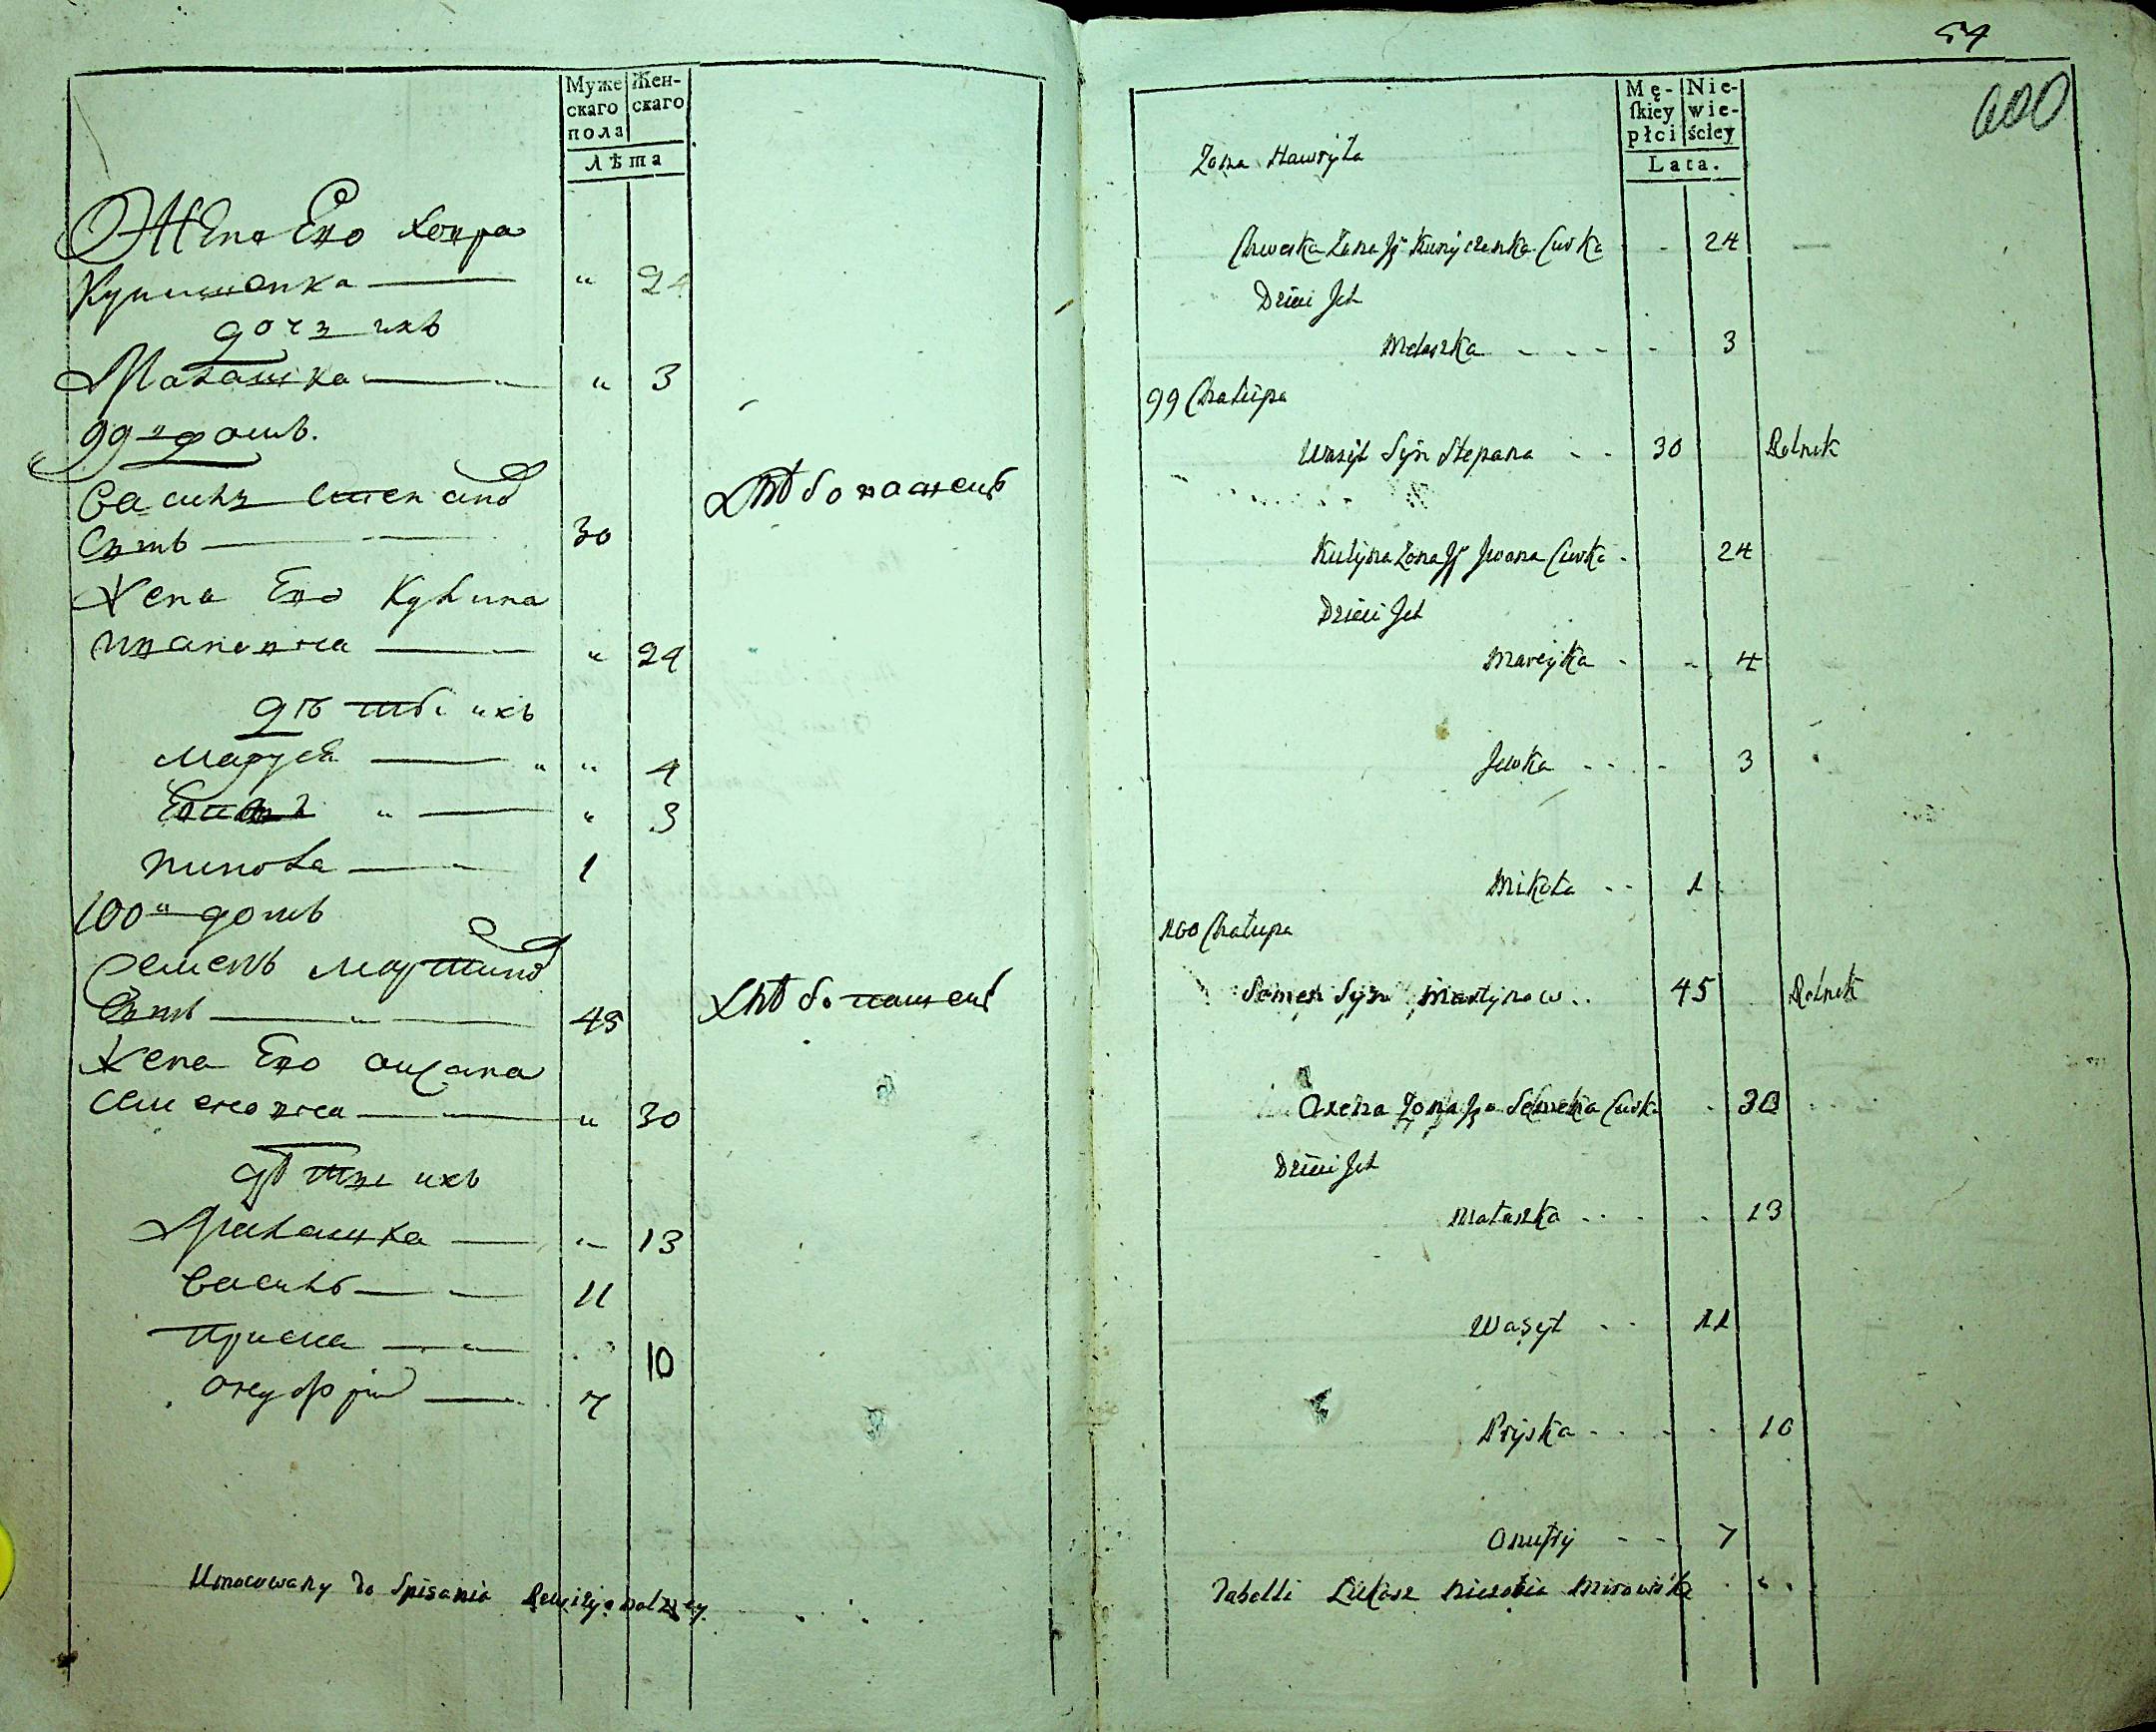 Муже Жен-
скаго скаго
пола
лѣта
Жена Его Хокра
Куришенка — " 24
дочъ ихъ
Малашка — " 3
99 домъ.
Василъ Степановъ
Сынъ — 30 Хлѣбопашецъ
Жена Его Кулина
Ивановна — " 24
дѣти ихъ
Маруся — " " 4
" — " 3
Никола — 1
100 домъ
Семенъ Мартиновъ
Сынъ — 45 Хлѣбопашецъ
Жена Его Оксана
Семеновна — " 30
дѣти ихъ
Малашка — " 13
Василь — 11
Приска — 10
Онуфрій — 7
Umocowany do Spisania Rewizyonalney
54
600
Mę- Nie-
ſkiey wie-
płci ściey
Lata.
Żona Hawryła
Chweska Żona Jº Kuryczenka Curka - - 24
Dzieci Ich
Melaszka - - - - - 3
99 Chałupa
Wasyl Syn Stepana - - 30 Rolnik
Kulyna Żona Jº Jwana Curka - 24
Dzieci Ich
Maryjka - - 4
Jewka - - - - 3
Mikoła - - 1
100 Chałupa
Semen Syn Martynow - - 45 Rolnik
Oxena Żona Jº Semena Curka - 30
Dzieci Ich
Małaszka - - - - 13
Wasyl - - 11
Pryska - - - - 10
Onufry - - 7
Tabelli Łukasz Mirowski